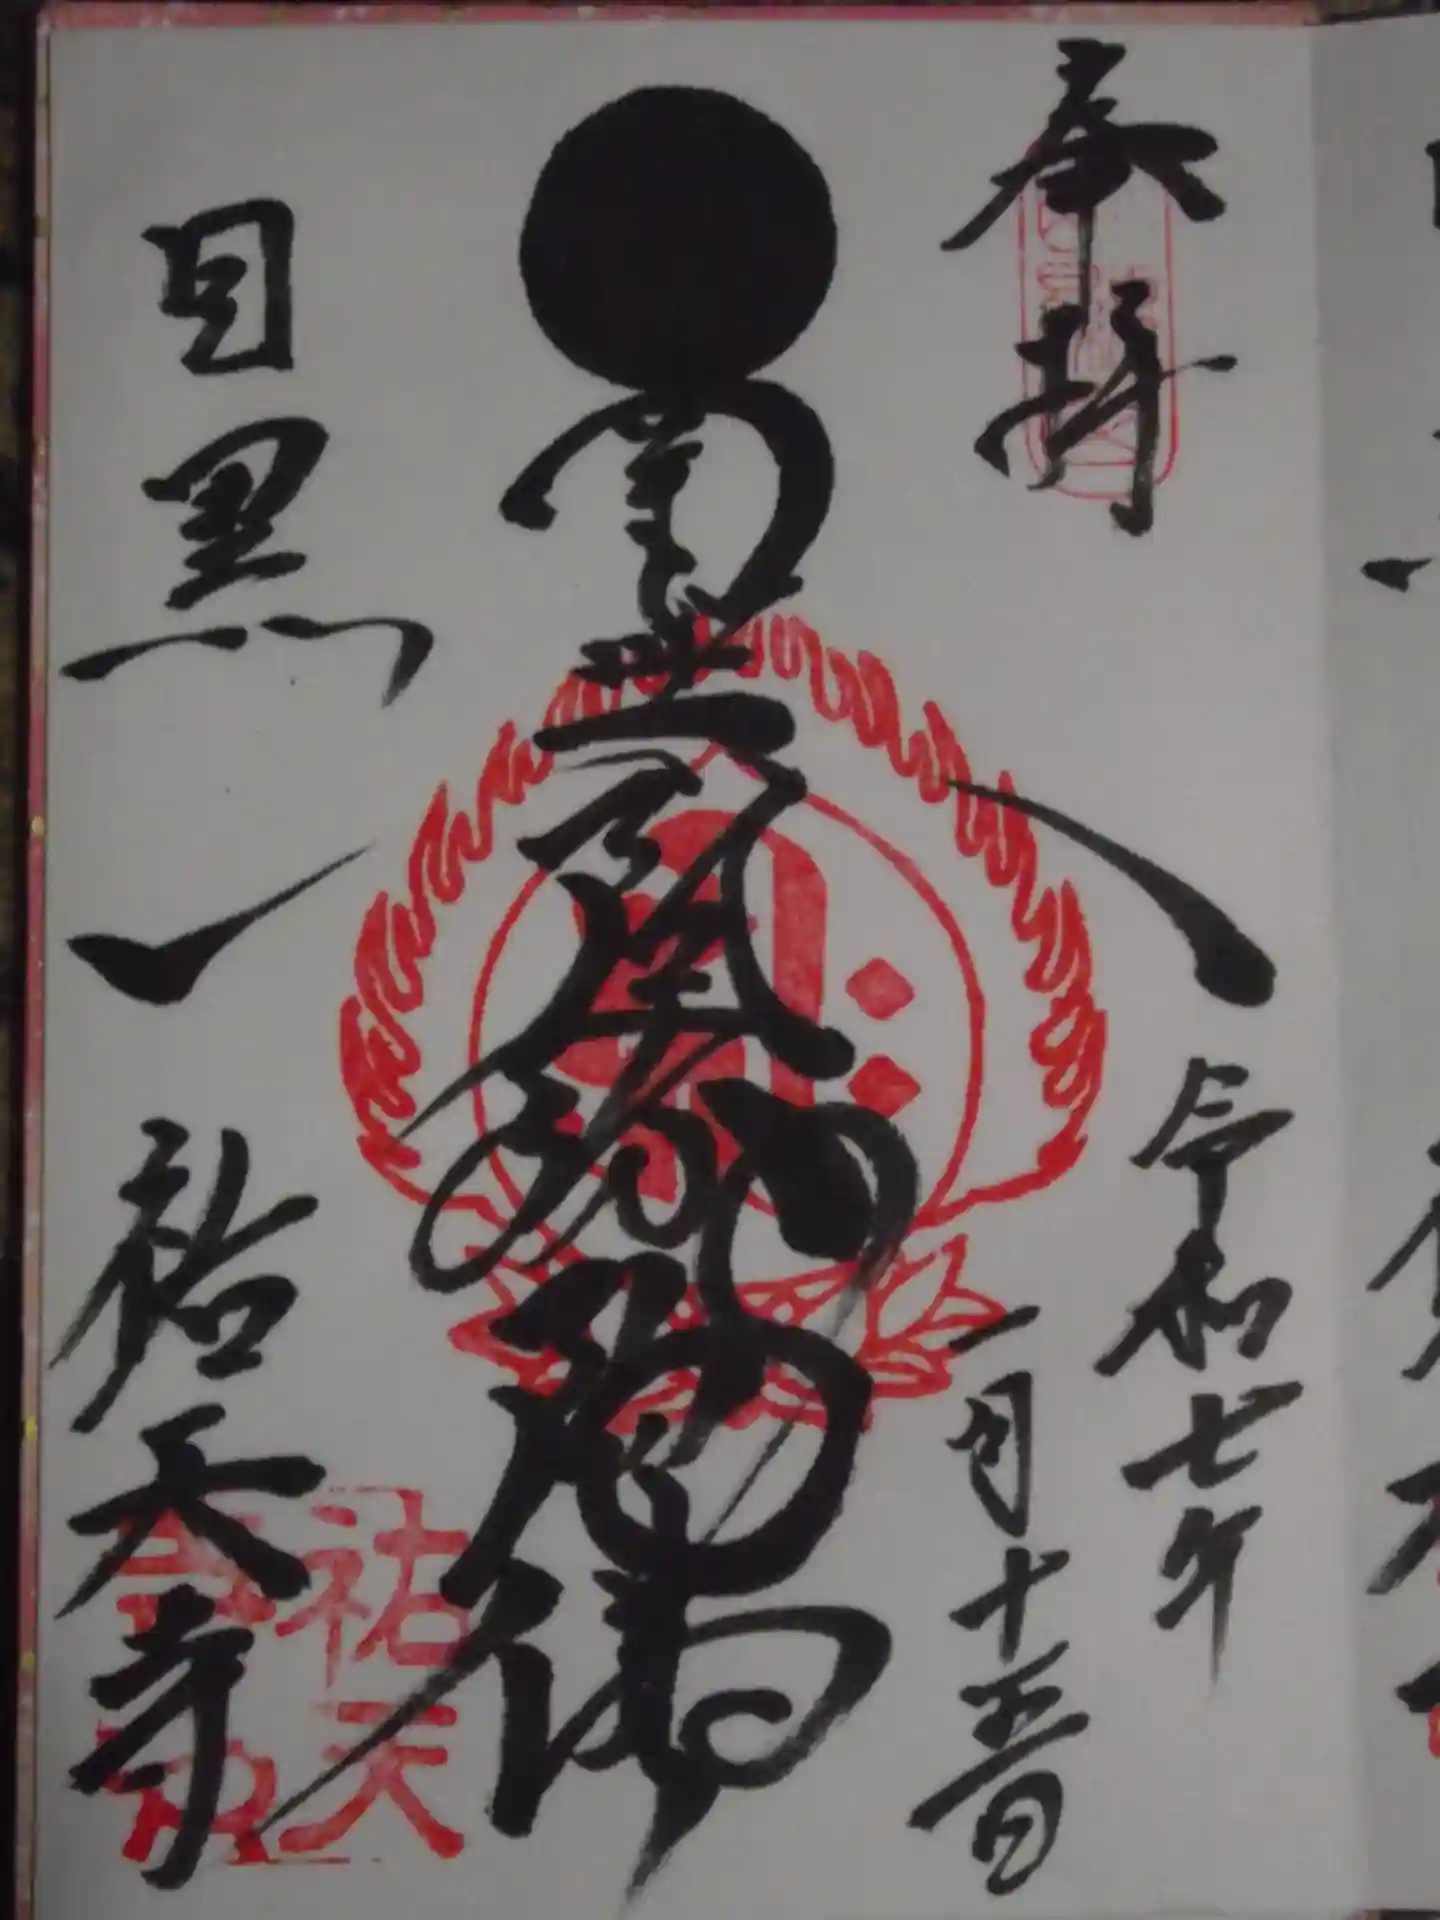 奉拝
令和七年
一月十五日
南無阿弥陀佛
目黒
祐天寺
祐天